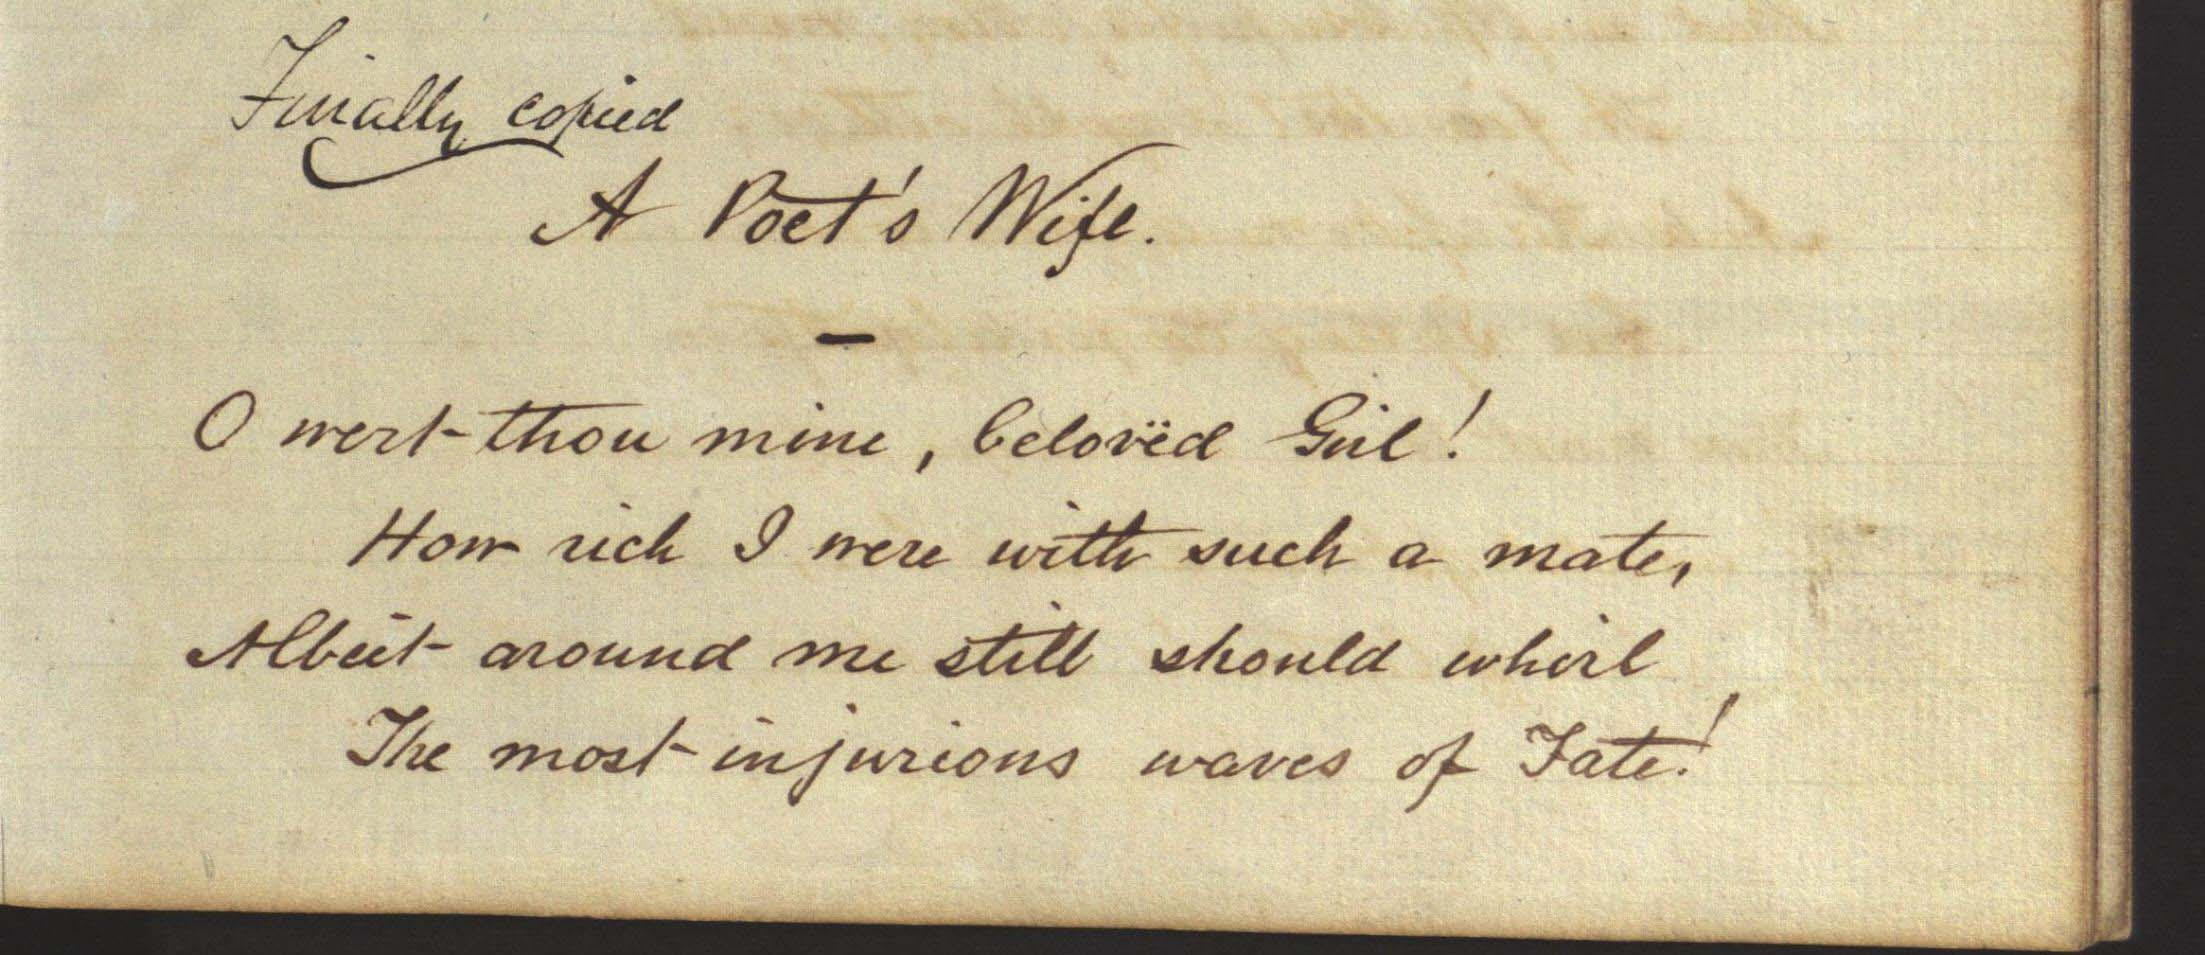 Finally copied
A Poet's Wife.
—
O wert thou mine, belovëd Girl!
How rich I were with such a mate,
Albeit around me still should whirl
The most injurious waves of Fate!